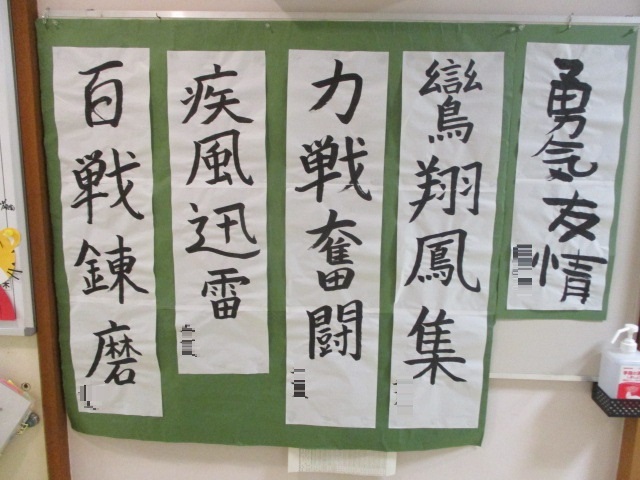 勇気友情
鸞翔鳳集
力戦奮闘
疾風迅雷
百戦錬磨